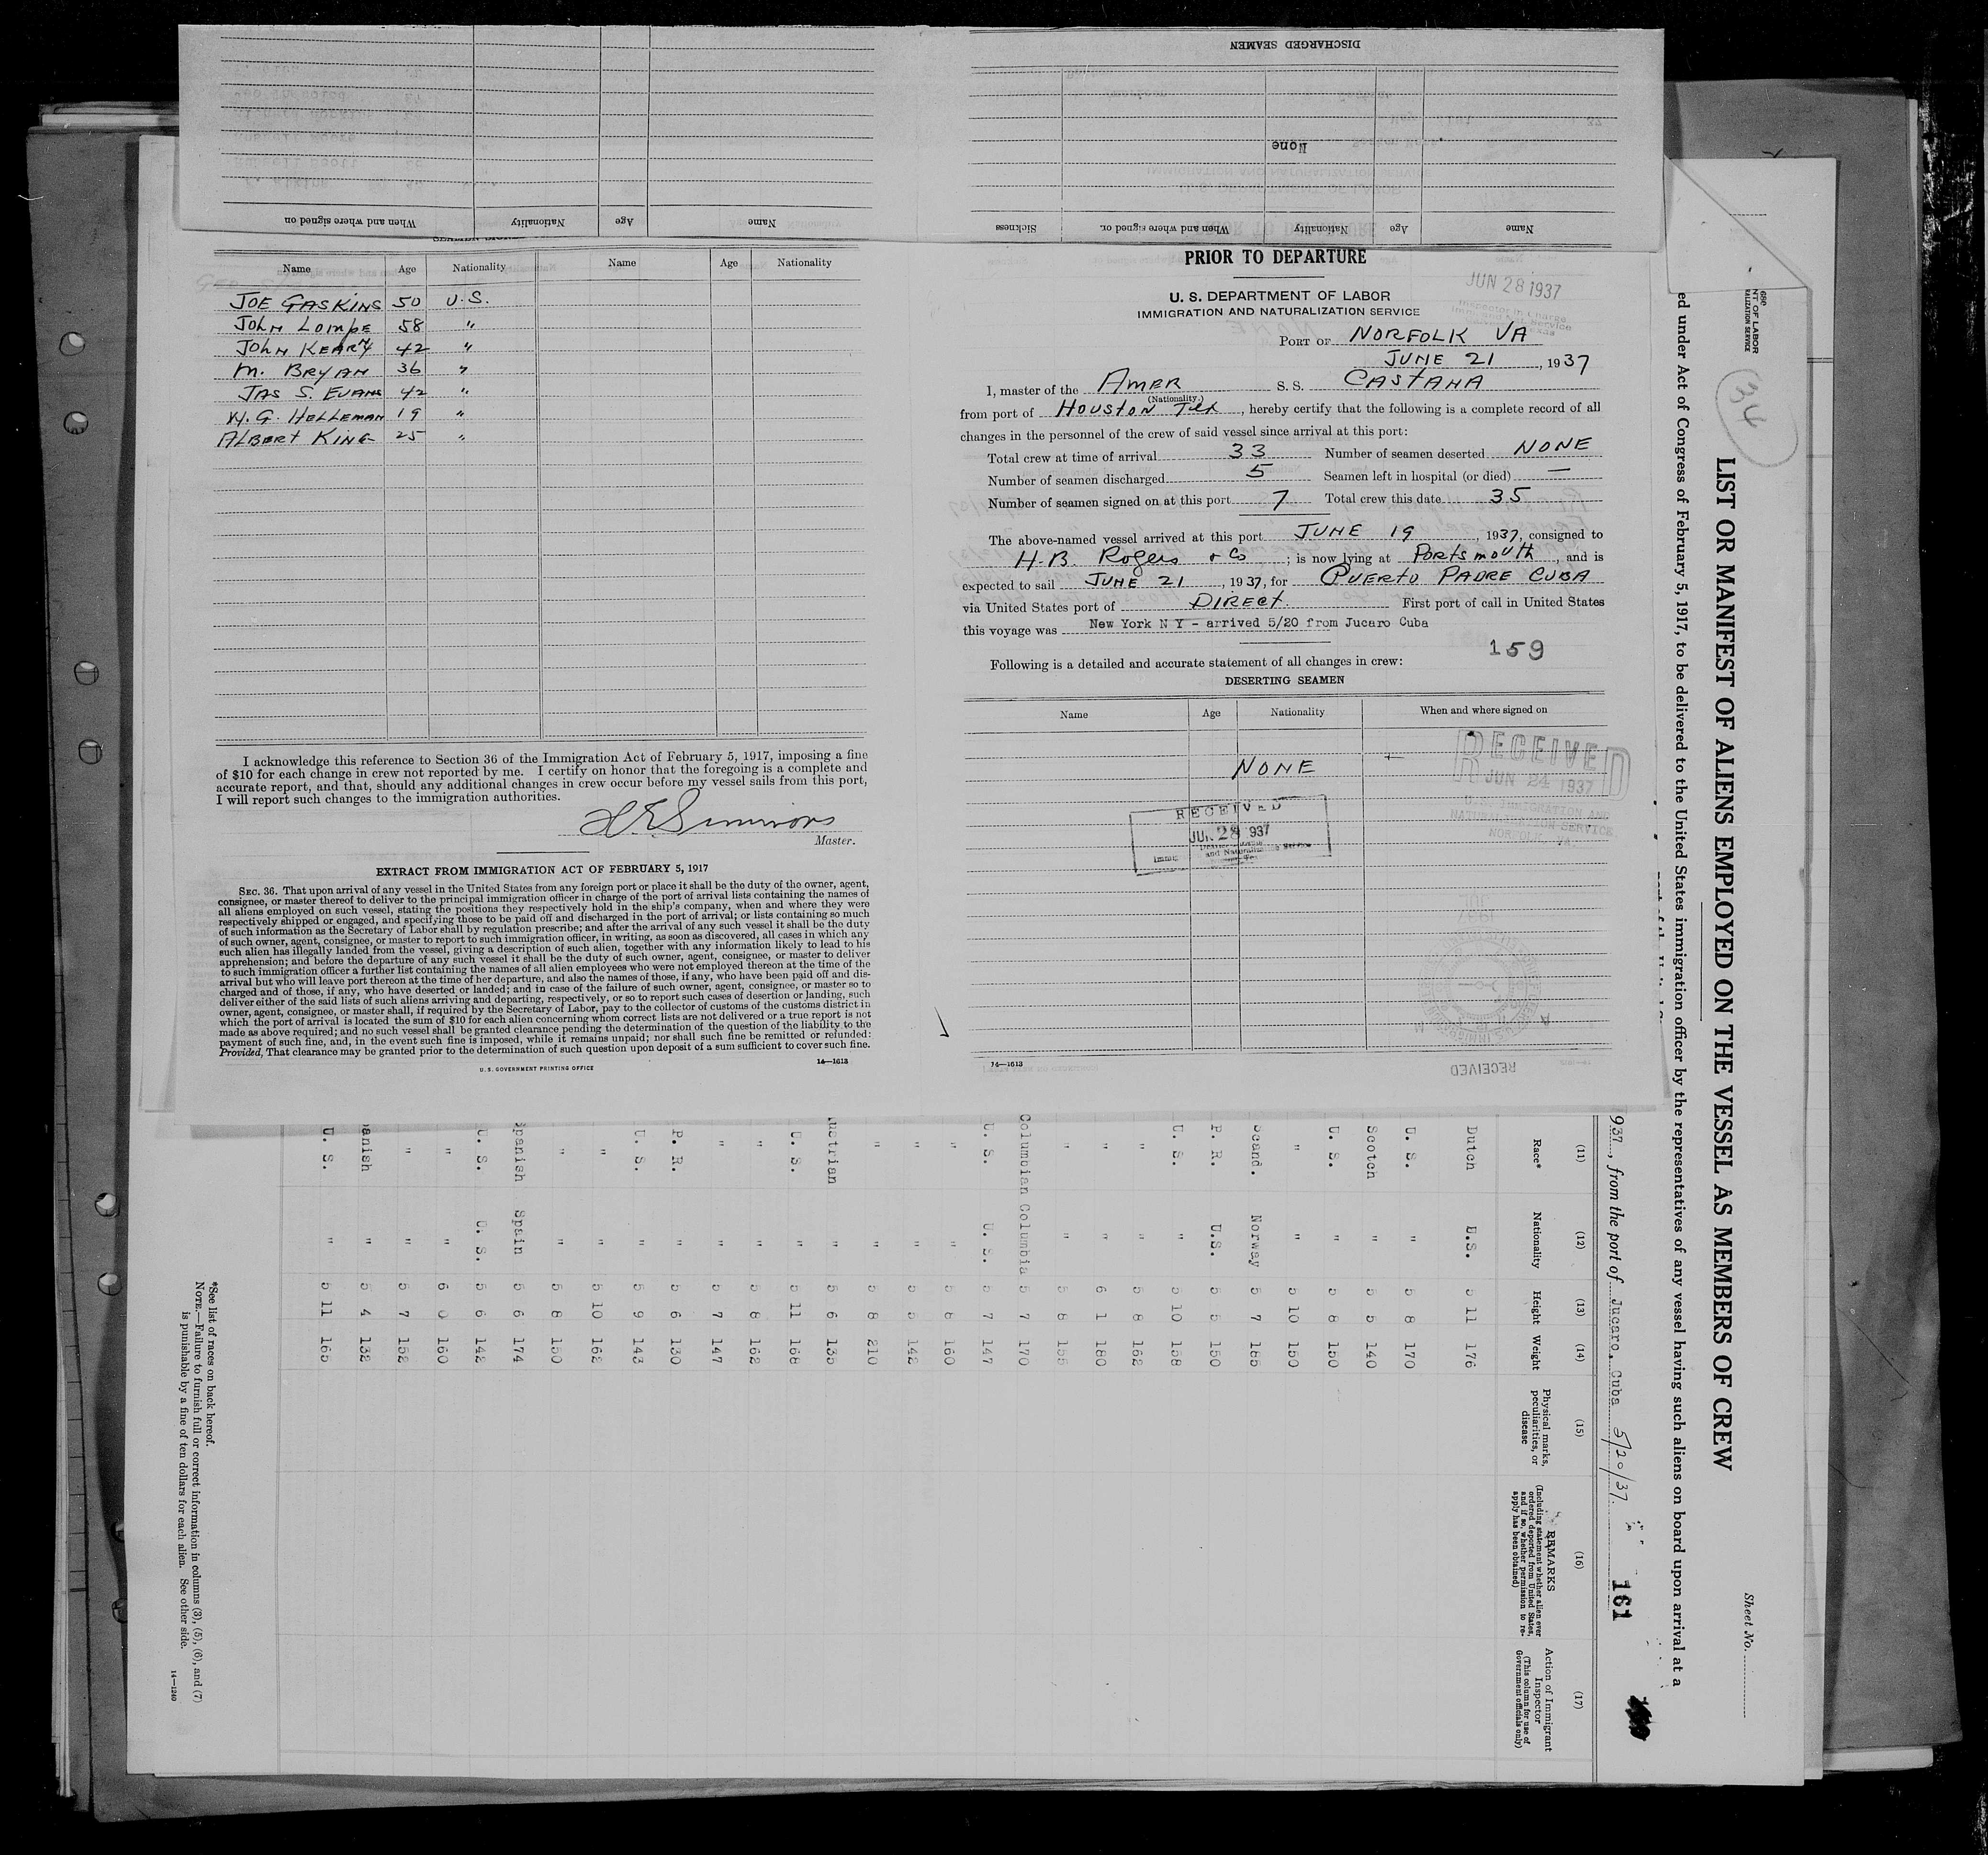 DISCHARGED SEAMEN
None
When and where signed on Nationality Age Name
Sickness When and where signed or. Nationality Age Name
Name Age Nationality Name Age Nationality
JOE GASKINS 50 U.S.
JOHN LOMPE 58 "
JOHN KEARY 42 "
M. BRYAN 36 "
JAS S. EVANS 42 "
W. G. HOLLEMAN 19 "
ALBERT KING 25 "
I acknowledge this reference to Section 36 of the Immigration Act of February 5, 1917, imposing a fine
of $10 for each change in crew not reported by me. I certify on honor that the foregoing is a complete and
accurate report, and that, should any additional changes in crew occur before my vessel sails from this port,
I will report such changes to the immigration authorities.
Simmons
Master.
EXTRACT FROM IMMIGRATION ACT OF FEBRUARY 5, 1917
SEC. 36. That upon arrival of any vessel in the United States from any foreign port or place it shall be the duty of the owner, agent,
consignee, or master thereof to deliver to the principal immigration officer in charge of the port of arrival lists containing the names of
all aliens employed on such vessel, stating the positions they respectively hold in the ship's company, when and where they were
respectively shipped or engaged, and specifying those to be paid off and discharged in the port of arrival; or lists containing so much
of such information as the Secretary of Labor shall by regulation prescribe; and after the arrival of any such vessel it shall be the duty
of such owner, agent, consignee, or master to report to such immigration officer, in writing, as soon as discovered, all cases in which any
such alien has illegally landed from the vessel, giving a description of such alien, together with any information likely to lead to his
apprehension; and before the departure of any such vessel it shall be the duty of such owner, agent, consignee, or master to deliver
to such immigration officer a further list containing the names of all alien employees who were not employed thereon at the time of the
arrival but who will leave port thereon at the time of her departure, and also the names of those, if any, who have been paid off and dis-
charged and of those, if any, who have deserted or landed; and in case of the failure of such owner, agent, consignee, or master so to
deliver either of the said lists of such aliens arriving and departing, respectively, or so to report such cases of desertion or landing, such
owner, agent, consignee, or master shall, if required by the Secretary of Labor, pay to the collector of customs of the customs district in
which the port of arrival is located the sum of $10 for each alien concerning whom correct lists are not delivered or a true report is not
made as above required; and no such vessel shall be granted clearance pending the determination of the question of the liability to the
payment of such fine, and, in the event such fine is imposed, while it remains unpaid; nor shall such fine be remitted or refunded:
Provided, That clearance may be granted prior to the determination of such question upon deposit of a sum sufficient to cover such fine.
U. S. GOVERNMENT PRINTING OFFICE
14—1613
PRIOR TO DEPARTURE
JUN 28 1937
U. S. DEPARTMENT OF LABOR
IMMIGRATION AND NATURALIZATION SERVICE
Inspector in Charge
PORT OF NORFOLK VA
JUNE 21, 1937
I, master of the AMER S. S. CASTANA
(Nationality.)
from port of HOUSTON TEX, hereby certify that the following is a complete record of all
changes in the personnel of the crew of said vessel since arrival at this port:
Total crew at time of arrival 33 Number of seamen deserted NONE
Number of seamen discharged 5 Seamen left in hospital (or died) —
Number of seamen signed on at this port 7 Total crew this date 35
The above-named vessel arrived at this port JUNE 19, 1937, consigned to
H.B. Rogers & Co; is now lying at PORTSMOUTH, and is
expected to sail JUNE 21, 1937, for PUERTO PADRE CUBA
via United States port of DIRECT. First port of call in United States
this voyage was New York N Y - arrived 5/20 from Jucaro Cuba
159
Following is a detailed and accurate statement of all changes in crew:
DESERTING SEAMEN
Name Age Nationality When and where signed on
NONE
RECEIVED
JUN 24 1937
U.S. IMMIGRATION AND
NATURALIZATION SERVICE
NORFOLK, VA.
RECEIVED
JUN 28 937
14—1613
RECEIVED
Sheet No.
LIST OR MANIFEST OF ALIENS EMPLOYED ON THE VESSEL AS MEMBERS OF CREW
34
ed under Act of Congress of February 5, 1917, to be delivered to the United States immigration officer by the representatives of any vessel having such aliens on board upon arrival at a
937, from the port of Jucaro, Cuba 5/20/37. 161
(11) (12) (13) (14) (15) (16) (17)
Race* Nationality Height Weight Physical marks, peculiarities, or disease REMARKS (Including statement whether alien ever ordered deported from United States, and if so, whether permission to re-apply has been obtained) Action of Immigrant Inspector (This column for use of Government officials only)
Dutch U.S. 5 11 176
U. S. " 5 8 170
Scotch " 5 5 140
U. S. " 5 8 150
" " 5 10 150
Scand. Norway 5 7 165
P. R. U.S. 5 5 150
U. S. " 5 10 158
" " 5 8 162
" " 6 1 180
" " 5 8 155
Columbian Columbia 5 7 170
U. S. U. S. 5 7 147
" " 5 8 160
" " 5 5 142
" " 5 8 210
ustrian " 5 6 135
U. S. " 5 11 168
" " 5 8 162
" " 5 7 147
P. R. " 5 6 130
U. S. " 5 9 143
" " 5 10 162
" " 5 8 150
Spanish Spain 5 6 174
U. S. U. S. 5 6 142
" " 6 0 160
" " 5 7 152
panish " 5 4 132
U. S. " 5 11 165
*See list of races on back hereof.
NOTE.—Failure to furnish full or correct information in columns (3), (5), (6), and (7)
is punishable by a fine of ten dollars for each alien. See other side.
14—1240